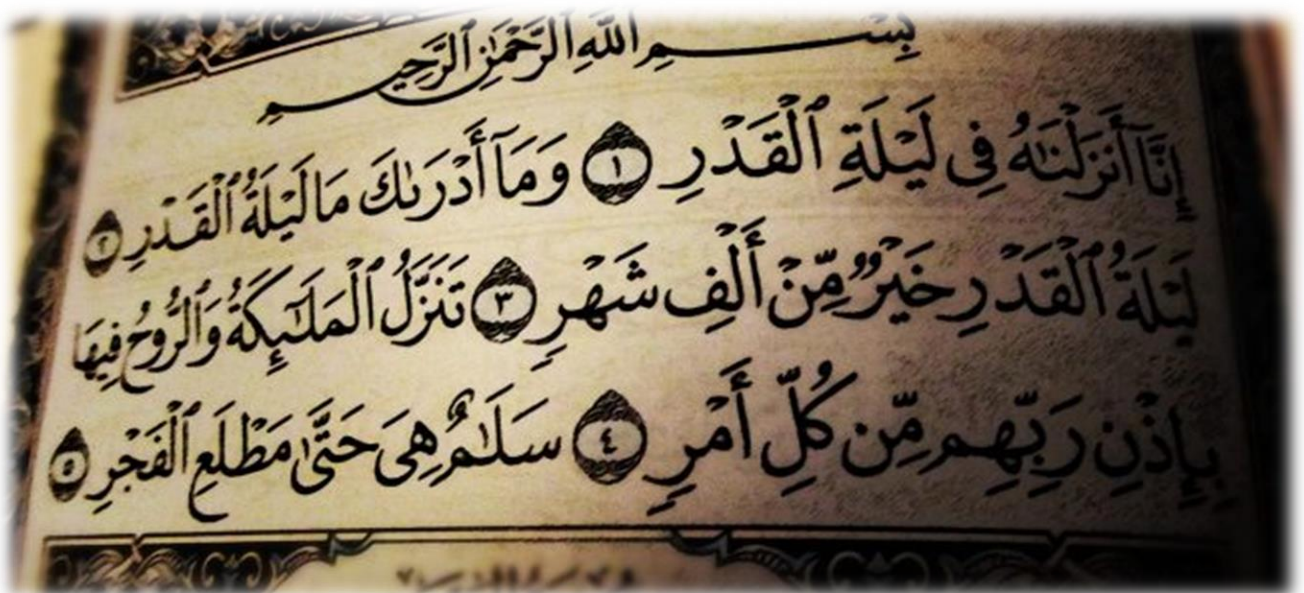 بِسْمِ ٱللَّهِ ٱلرَّحْمَٰنِ ٱلرَّحِيمِ
إِنَّآ أَنزَلْنَٰهُ فِى لَيْلَةِ ٱلْقَدْرِ ١ وَمَآ أَدْرَىٰكَ مَا لَيْلَةُ ٱلْقَدْرِ ٢
لَيْلَةُ ٱلْقَدْرِ خَيْرٌ مِّنْ أَلْفِ شَهْرٍ ٣ تَنَزَّلُ ٱلْمَلَٰٓئِكَةُ وَٱلرُّوحُ فِيهَا
بِإِذْنِ رَبِّهِم مِّن كُلِّ أَمْرٍ ٤ سَلَٰمٌ هِىَ حَتَّىٰ مَطْلَعِ ٱلْفَجْرِ ٥